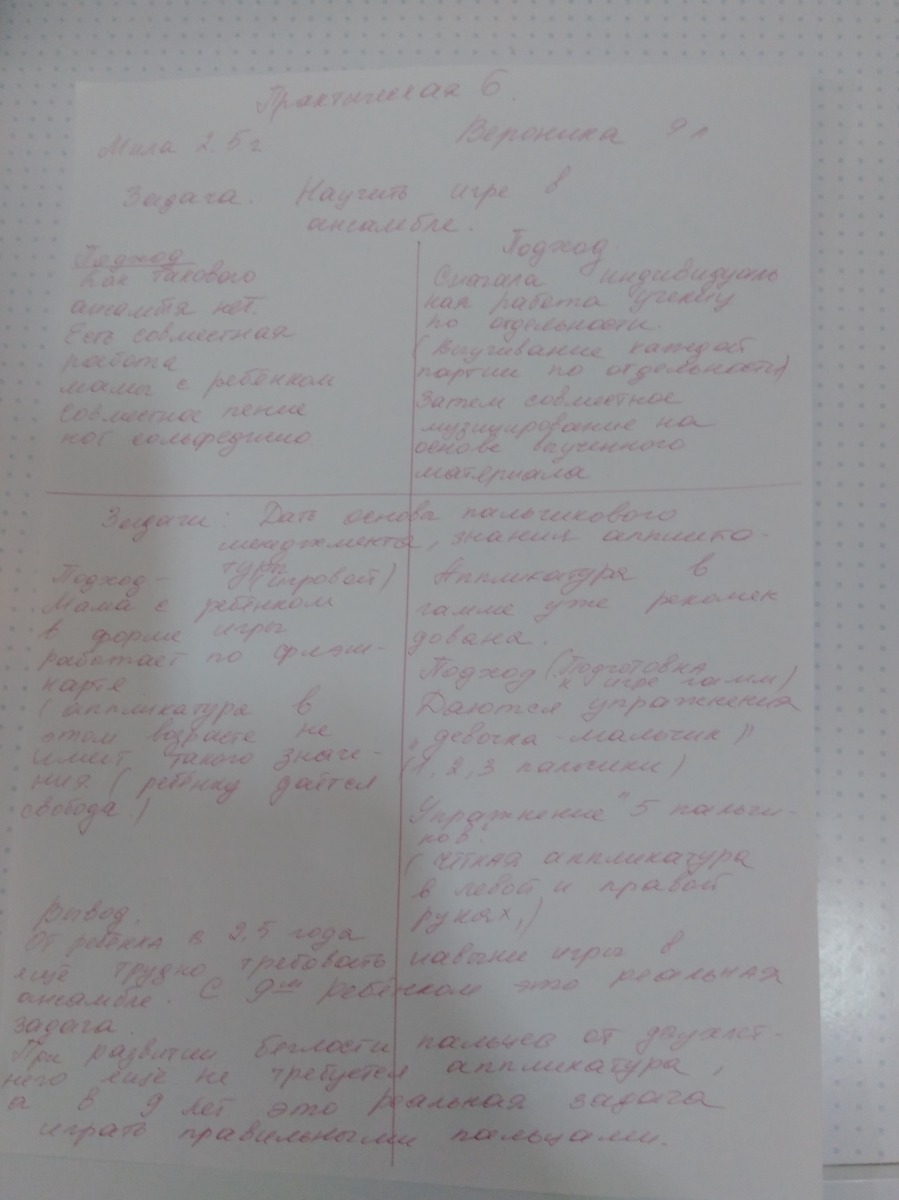 Практическая 6.
Мила 2.5 г
Вероника 9 л
Задача. Научить игре в
ансамбле.
Подход
Как такового
ансамбля нет.
Есть совместная
работа
мамы с ребёнком
Совместное пение
нот сольфеджио
Подход.
Сначала индивидуаль
ная работа ученику
по отдельности.
(Выучивание каждой
партии по отдельности)
Затем совместное
музицирование на
основе выученного
материала
Задачи: Дать основы пальчикового
менеджмента, знания апплика-
туры
Подход - (игровой)
Мама с ребёнком
в форме игры
работает по флэш-
карте
(аппликатура в
этом возрасте не
имеет такого значе-
ния. (ребёнку даётся
свобода.)
Аппликатура в
гамме уже рекомен
дована.
Подход (Подготовка
к игре гамм)
Даются упражнения
"девочка-мальчик)"
(1, 2, 3 пальчики)
Упражнение "5 пальчи-
ков".
(чёткая аппликатура
в левой и правой
руках,)
Вывод.
От ребёнка в 2,5 года
ещё трудно требовать навыки игры в
ансамбле. С 9м ребёнком это реальная
задача.
При развитии беглости пальцев от двухлет-
него ещё не требуется аппликатура,
а в 9 лет это реальная задача
играть правильными пальцами.